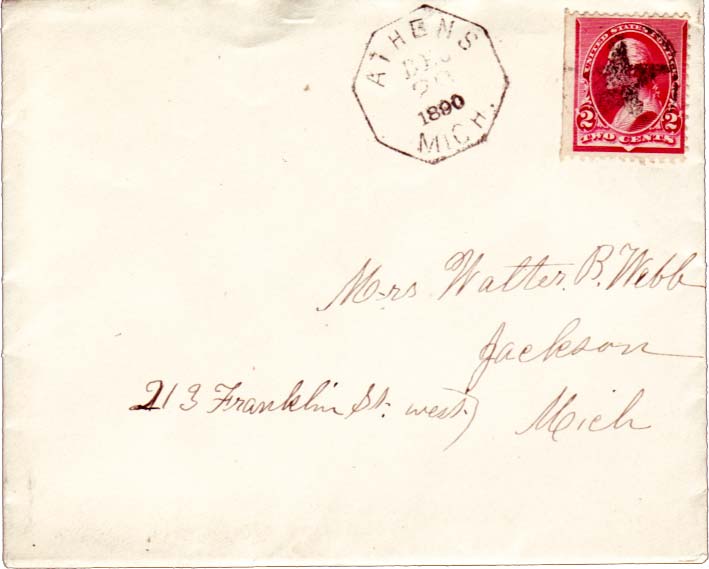 ATHENS
DEC
20
1890
MICH.
UNITED STATES POSTAGE
2 2
TWO CENTS
Mrs Walter B. Webb
Jackson
213 Franklin St. west) Mich